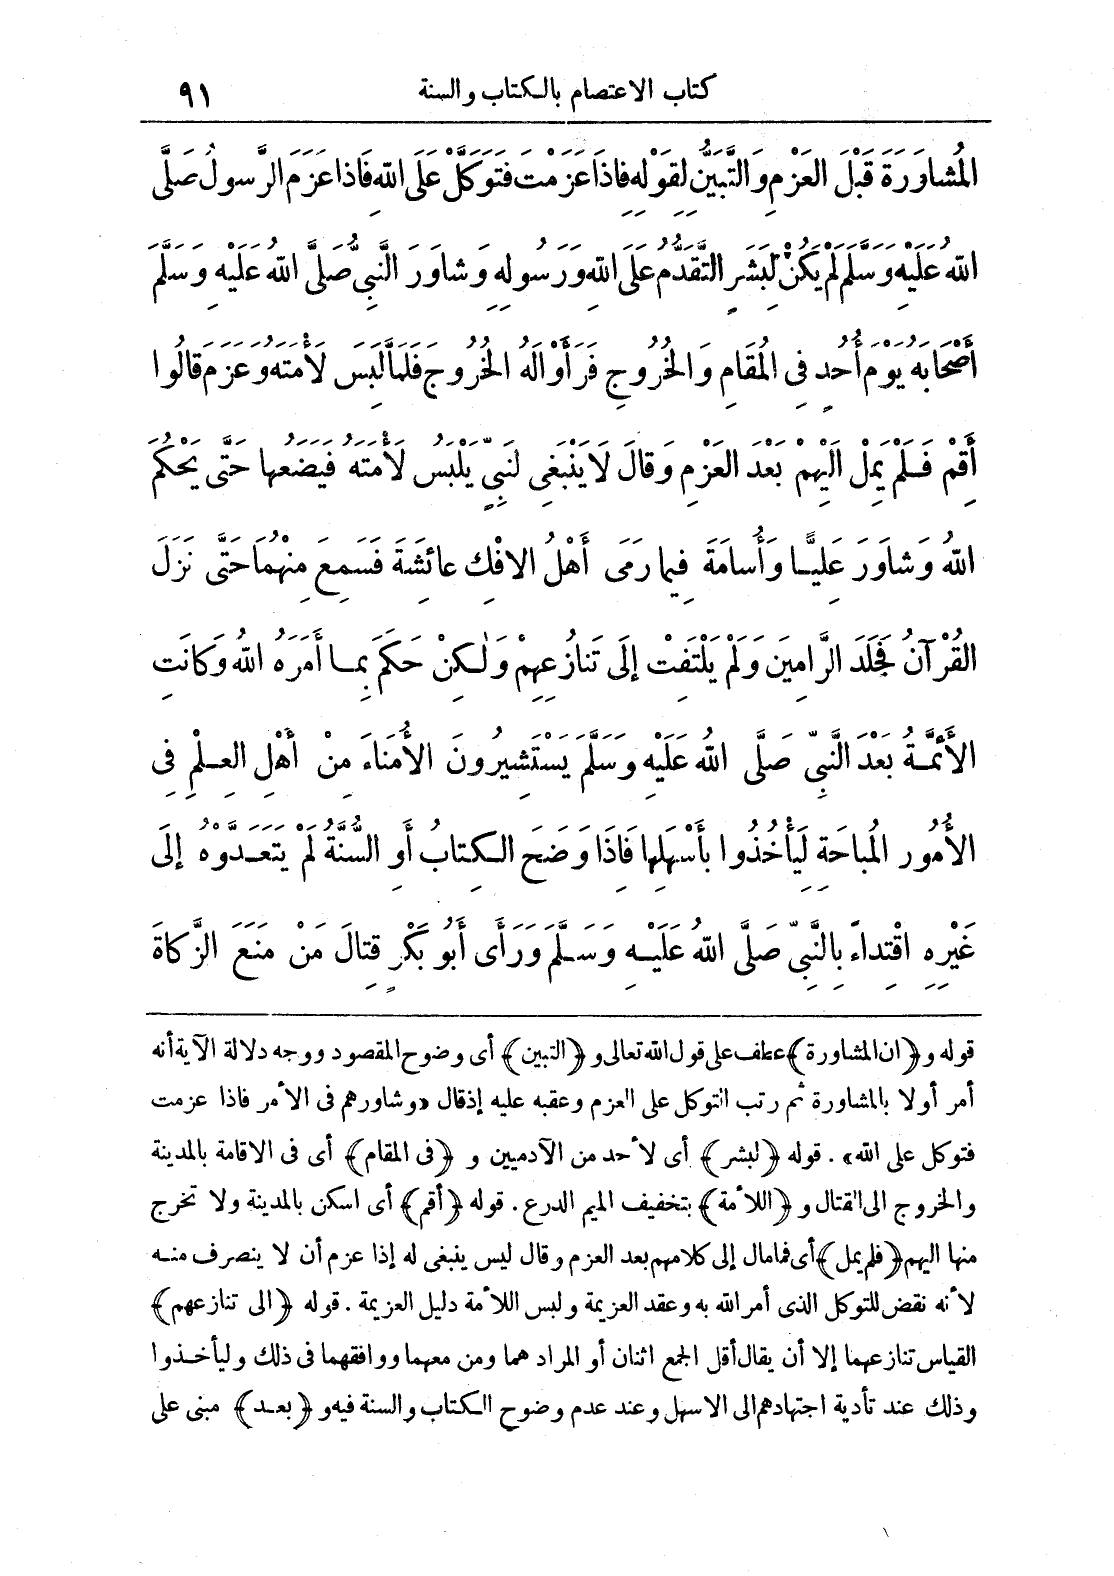 كتاب الاعتصام بالكتاب والسنة ٩١
المُشاوَرَةَ قَبْلَ العَزْمِ وَالتَّبَيُّنِ لِقَوْلِهِ فاذَا عَزَمْتَ فَتَوَكَّلْ عَلَى اللّٰهِ فَاذا عَزَمَ الرَّسولُ صَلَّى
اللّٰهُ عَلَيْهِ وَسَلَّمَ لَمْ يَكُنْ لِبَشَرٍ التَّقَدُّمُ عَلَى اللّٰهِ وَرَسُولِهِ وَشاوَرَ النَّبِيُّ صَلَّى اللّٰهُ عَلَيْهِ وَسَلَّمَ
أَصْحَابَهُ يَوْمَ أُحُدٍ فِى المُقَامِ وَالخُرُوجِ فَرَأَوْا لَهُ الخُرُوجَ فَلَمَّا لَبِسَ لَأْمَتَهُ وَعَزَمَ قالُوا
أَقِمْ فَلَمْ يَمِلْ الَيْهِمْ بَعْدَ العَزْمِ وَقالَ لا يَنْبَغِى لِنَبِيٍّ يَلْبَسُ لَأْمَتَهُ فَيَضَعُها حَتَّى يَحْكُمَ
اللّٰهُ وَشاوَرَ عَلِيًّا وَأُسامَةَ فِيما رَمَى أَهْلُ الافْكِ عائِشَةَ فَسَمِعَ مِنْهُمَا حَتَّى نَزَلَ
القُرْآنُ فَجَلَدَ الرَّامِينَ وَلَمْ يَلْتَفِتْ إلَى تَنازُعِهِمْ وَلٰكِنْ حَكَمَ بِما أَمَرَهُ اللّٰهُ وَكانَتِ
الأَئِمَّةُ بَعْدَ النَّبِيِّ صَلَّى اللّٰهُ عَلَيْهِ وَسَلَّمَ يَسْتَشِيرُونَ الأُمَناءَ مِنْ أَهْلِ العِلْمِ فِى
الأُمُورِ المُباحَةِ لِيَأْخُذُوا بأَسْهَلِها فَاذَا وَضَحَ الكِتابُ أَوِ السُّنَّةُ لَمْ يَتَعَدَّوْهُ إلَى
غَيْرِهِ اقْتِداءً بِالنَّبِيِّ صَلَّى اللّٰهُ عَلَيْهِ وَسَلَّمَ وَرَأَى أَبُو بَكْرٍ قِتالَ مَنْ مَنَعَ الزَّكاةَ
قوله و﴿ان المشاورة﴾ عطف على قول الله تعالى و﴿التبين﴾ أى وضوح المقصود ووجه دلالة الآية أنه
أمر أولا بالمشاورة ثم رتب التوكل على العزم وعقبه عليه إذ قال «وشاورهم فى الأمر فاذا عزمت
فتوكل على الله» . قوله ﴿لبشر﴾ أى لأحد من الآدميين و ﴿فى المقام﴾ أى فى الاقامة بالمدينة
والخروج الى القتال و ﴿اللأمة﴾ بتخفيف الميم الدرع . قوله ﴿أقم﴾ أى اسكن بالمدينة ولا تخرج
منها اليهم ﴿فلم يمل﴾ أى فما مال إلى كلامهم بعد العزم وقال ليس ينبغى له إذا عزم أن لا ينصرف منه
لأنه نقض للتوكل الذى أمر الله به وعقد العزيمة ولبس اللأمة دليل العزيمة . قوله ﴿الى تنازعهم﴾
القياس تنازعهما إلا أن يقال أقل الجمع اثنان أو المراد هما ومن معهما ووافقهما فى ذلك وليأخذوا
وذلك عند تأدية اجتهادهم الى الاسهل وعند عدم وضوح الكتاب والسنة فيه و ﴿بعد﴾ مبنى على